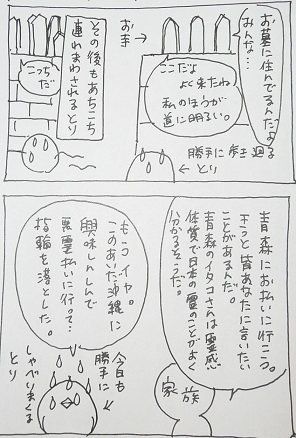 お墓に住んでるんだよ
みんな…
ここだよ
よく来たね
私のほうが
道に明るい。
勝手に歩き廻る
←とり
その後もあちこち
連れまわされるとり
こっち
だ
青森にお払いに行こう。
きっと皆あなたに言いたい
ことがあるんだ。
青森のイタコさんは霊感
体質で日本の霊のことがよく
分かるそうだ。
家族
もうイヤ。
このあいだ沖縄に
興味しんしんで
悪霊払いに行って…
指輪を落とした。
今日も
勝手に
しゃべりまくる
とり